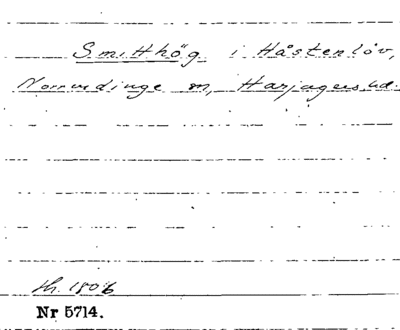 Smitthög i Håstenlöv,
Norrvidinge sn, Harjagers hd.
th. 1806
Nr 5714.